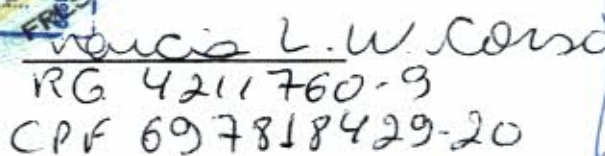 FRES
Marcia L. W. Corso
RG 4211760-9
CPF 697818429-20